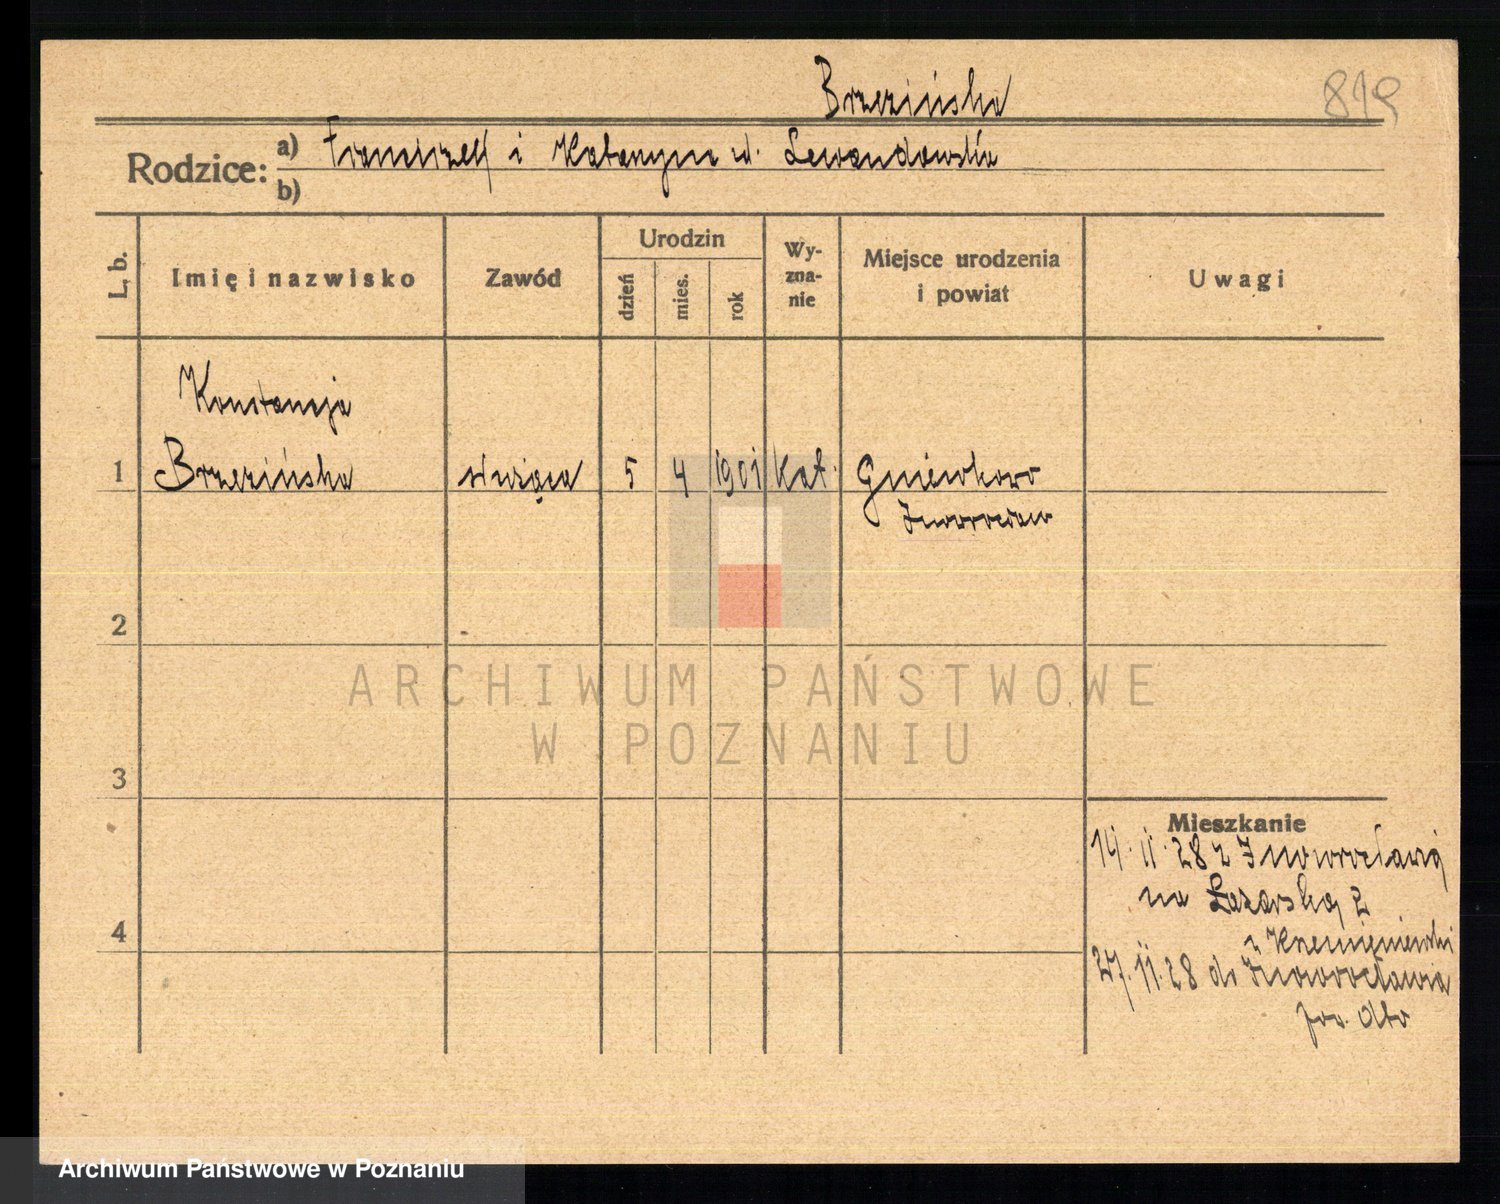 Brzezińska
819
Rodzice: a) Franciszek i Katarzyna ur. Lewandowska
b)
L. b.
Imię i nazwisko
Zawód
Urodzin
dzień
mies.
rok
Wy-
zna-
nie
Miejsce urodzenia
i powiat
Uwagi
Konstancja
1 Brzezińska służąca 5 4 1901 kat. Gniewkowo
Inowrocław
2
ARCHIWUM PAŃSTWOWE
W POZNANIU
3
Mieszkanie
14.11.28 z Inowrocławia
na Łazarską 2
4
27.11.28 do Inowrocławia
Archiwum Państwowe w Poznaniu